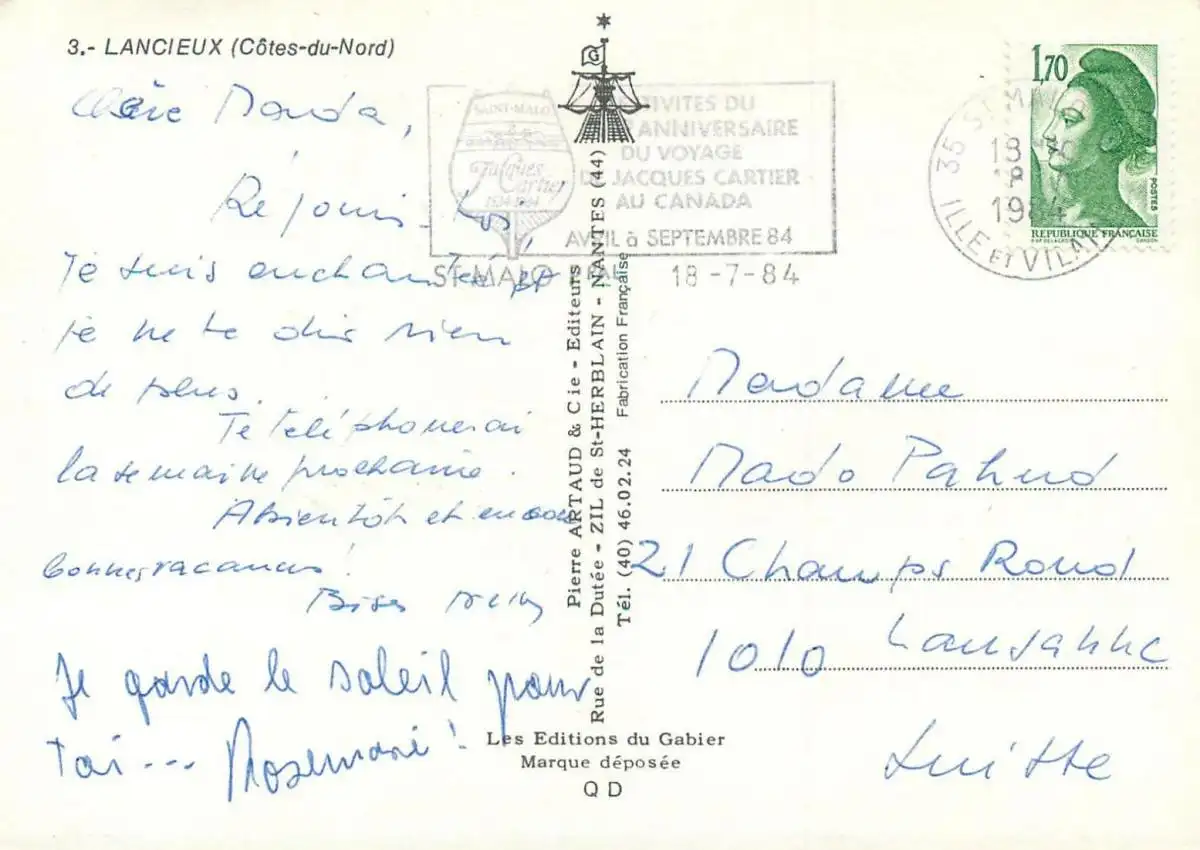 3.- LANCIEUX (Côtes-du-Nord)
Chère Mouda,
Réjouis-toi,
Je suis enchantée et
je ne te dis rien
de plus.
Te téléphonerai
la semaine prochaine.
A bientôt et encore
bonnes vacances!
Bises
Je garde le soleil pour
toi... Rosemarie!
G
SAINT-MALO
Jacques
Cartier
1534-1984
DU
ANNIVERSAIRE
DU VOYAGE
DE JACQUES CARTIER
AU CANADA
AVRIL à SEPTEMBRE 84
ST-MALO PAL 18-7-84
35 ST MALO
18
1984
ILLE ET VILAINE
1,70
POSTES
REPUBLIQUE FRANÇAISE
Pierre ARTAUD & Cie - Editeurs
Rue de la Dutée - ZIL de St-HERBLAIN - NANTES (44)
Tél. (40) 46.02.24 Fabrication Française
Madame
Mado Pahud
21 Champs Rond
1010 Lausanne
Suisse
Les Editions du Gabier
Marque déposée
QD